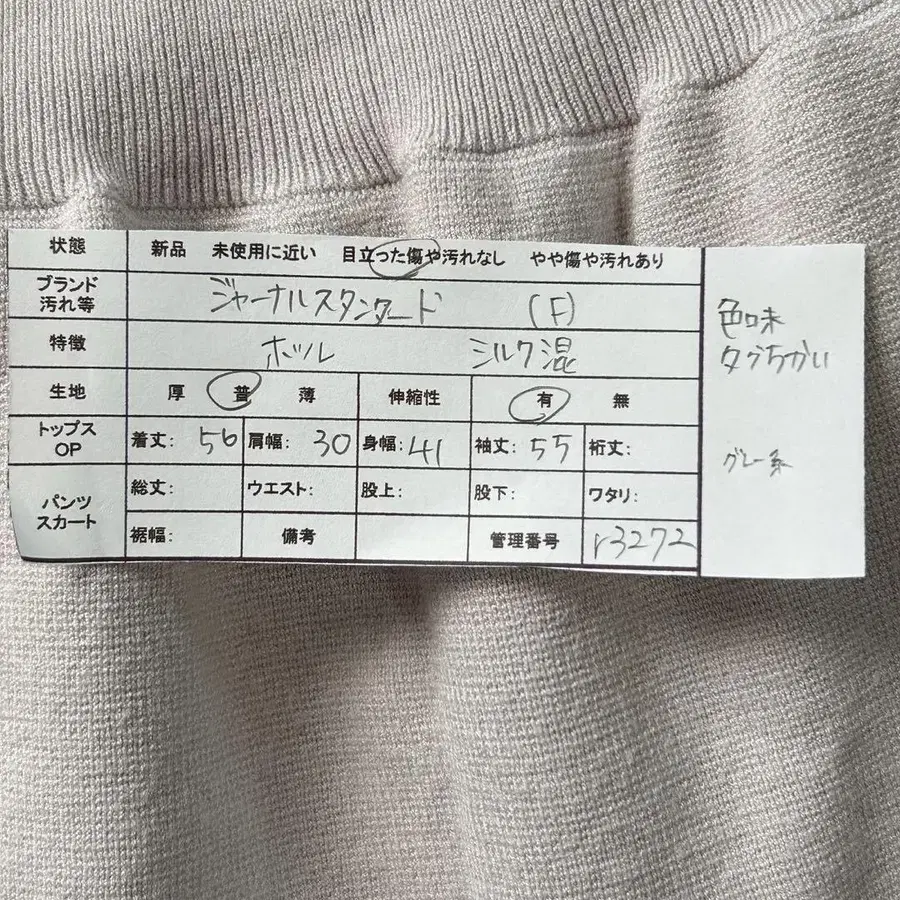 状態 新品 未使用に近い 目立った傷や汚れなし やや傷や汚れあり
ブランド
汚れ等 ジャーナルスタンダード (F)
特徴 ホツル シルク混
生地 厚 普 薄 伸縮性 有 無
トップス
OP 着丈: 56 肩幅: 30 身幅: 41 袖丈: 55 裄丈:
パンツ
スカート 総丈: ウエスト: 股上: 股下: ワタリ:
裾幅: 備考 管理番号 r3272
色味
タグちかい
グレー系